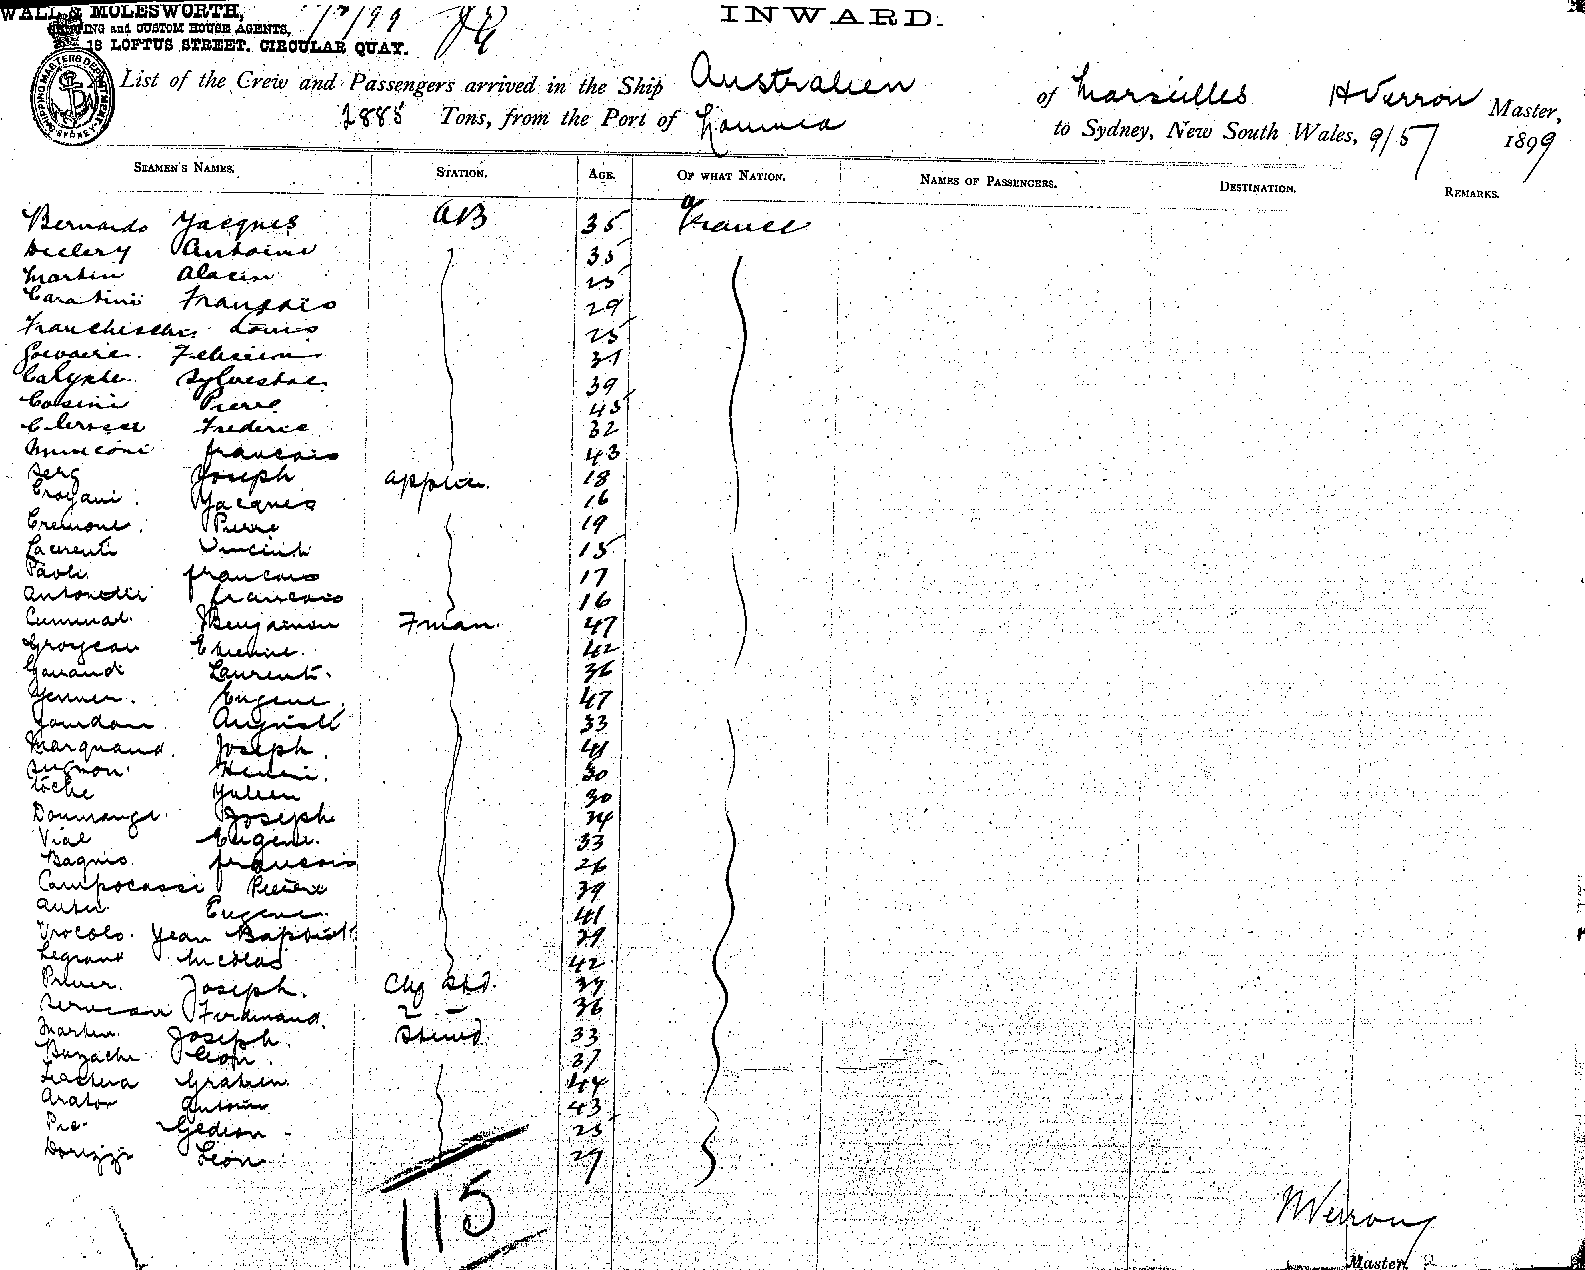 WALL & MOLESWORTH,
SHIPPING and CUSTOM HOUSE AGENTS,
18 LOFTUS STREET. CIRCULAR QUAY.
INWARD.
List of the Crew and Passengers arrived in the Ship Australien of Marseilles H Verron Master,
2885 Tons, from the Port of Noumea to Sydney, New South Wales, 9/5/ 1899
SEAMEN'S NAMES. STATION. AGE. OF WHAT NATION. NAMES OF PASSENGERS. DESTINATION. REMARKS.
Bernardo Jacques AB 35 France
Antoine 35
Martin 25
Caratini Francois 29
Francheschi Louis 25
Felicien 31
Calypte Sylvestre 39
Cossini Pierre 45
Frederic 32
Miniconi francois 43
Serg Joseph appce. 18
Croyani Jacques 16
Cremone Pierre 19
Laurenti Vincent 15
Paoli francois 17
Antonetti francois 16
Benjamin Fman. 47
Grosjean Etienne 42
Garaud Laurent 36
Eugene 47
Jourdan August 33
Marquand Joseph 41
Henri 30
Roche Julien 30
Doumange Joseph 34
Vial Eugene 33
Bagnis francois 26
Campocassi Pierre 39
Eugene 41
Jean Baptist 29
Legrand Nicolas 42
Joseph Chf Std. 39
Ferdinand 2 36
Martin Joseph Stewd 33
Leon 37
Gratien 44
Araton Antoine 43
Pre Gedeon 25
Dorizzi Leon 27
115
HVerron
Master